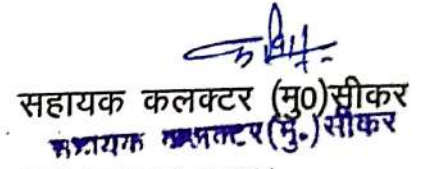 सहायक कलक्टर (मु0)सीकर
सहायक कलक्टर(मु.) सीकर